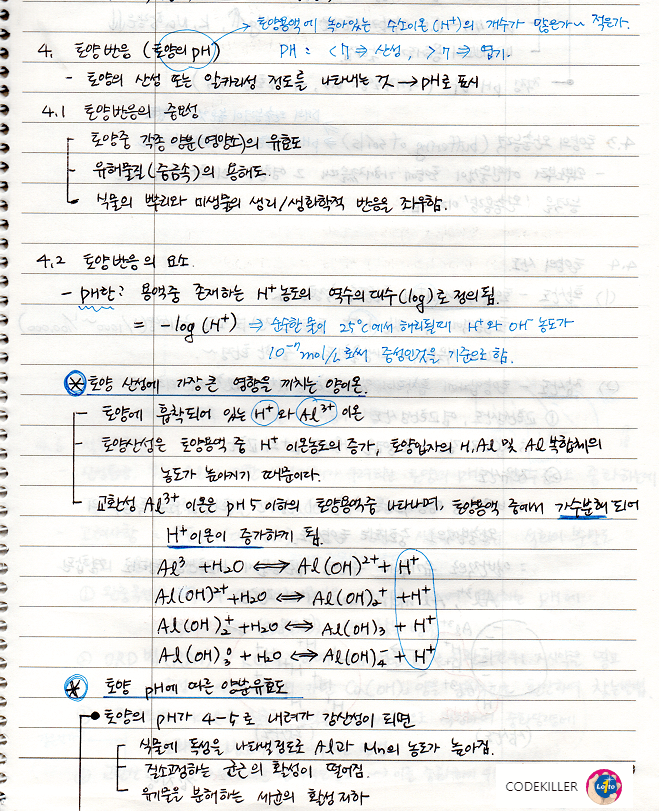 토양용액에 녹아있는 수소이온(H⁺)의 개수가 많은가~ 적은가.
4. 토양반응 (토양의 pH) PH : <7 ⇒ 산성, >7 ⇒ 염기.
- 토양의 산성 또는 알카리성 정도를 나타내는 것 → pH로 표시
4.1 토양반응의 중요성
토양중 각종 양분(영양소)의 유효도
유해물질(중금속)의 용해도.
식물의 뿌리와 미생물의 생리/생화학적 반응을 좌우함.
4.2 토양반응의 요소.
- pH란? 용액중 존재하는 H⁺농도의 역수의 대수(log)로 정의됨.
= -log(H⁺) ⇒ 순수한 물이 25℃에서 해리될때 H⁺와 OH⁻농도가
10⁻⁷mol/L로써 중성인것을 기준으로 함.
* 토양 산성에 가장 큰 영향을 끼치는 양이온.
토양에 흡착되어 있는 H⁺와 Al³⁺ 이온
토양산성은 토양용액 중 H⁺이온농도의 증가, 토양입자의 H, Al 및 Al복합체의
농도가 높아지기 때문이다.
교환성 Al³⁺이온은 pH 5이하의 토양용액중 나타나며, 토양용액 중에서 가수분해 되어
H⁺이온이 증가하게 됨.
Al³ + H₂O ⟺ Al(OH)²⁺ + H⁺
Al(OH)²⁺ + H₂O ⟺ Al(OH)₂⁺ + H⁺
Al(OH)₂⁺ + H₂O ⟺ Al(OH)₃ + H⁺
Al(OH)₃⁰ + H₂O ⟺ Al(OH)₄⁻ + H⁺
* 토양 pH에 따른 양분유효도
● 토양의 pH가 4-5로 내려가 강산성이 되면
식물에 독성을 나타낼정도로 Al과 Mn의 농도가 높아짐.
질소고정하는 균근의 활성이 떨어짐.
유기물을 분해하는 세균의 활성저하
CODEKILLER Lotto